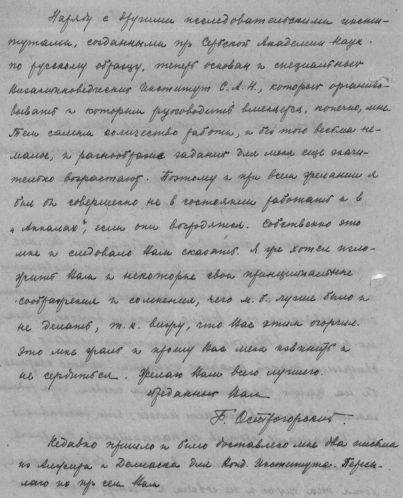 Наряду с другими исследовательскими инсти-
тутами, созданными пр. Сербской Академии Наук
по русскому образцу, теперь основан и специальный
Византиноведческий Институт С.А.Н., который организо-
вывать и которым руководить вменяется, конечно, мне.
Тем самым количество работы, и без того весьма не-
малое, и разнообразие задания для меня еще значи-
тельно возрастают. Поэтому и при всем желании я
был бы совершенно не в состоянии работать и в
„Анналах", если они возродятся. Собственно это
мне и следовало Вам сказать. Я же хотел изло-
жить Вам и некоторые свои принципиальные
соображения и сомнения, чего м.б. лучше было и
не делать, т.к. вижу, что Вас этим огорчил.
Это мне жаль и прошу Вас меня извинить и
не сердиться. Желаю Вам всего лучшего.
Преданный Вам
Г. Острогорский.
Недавно пришло и было доставлено мне два письма
из и Дамаска для Конд. Института. Пересы-
лаю их при сем Вам